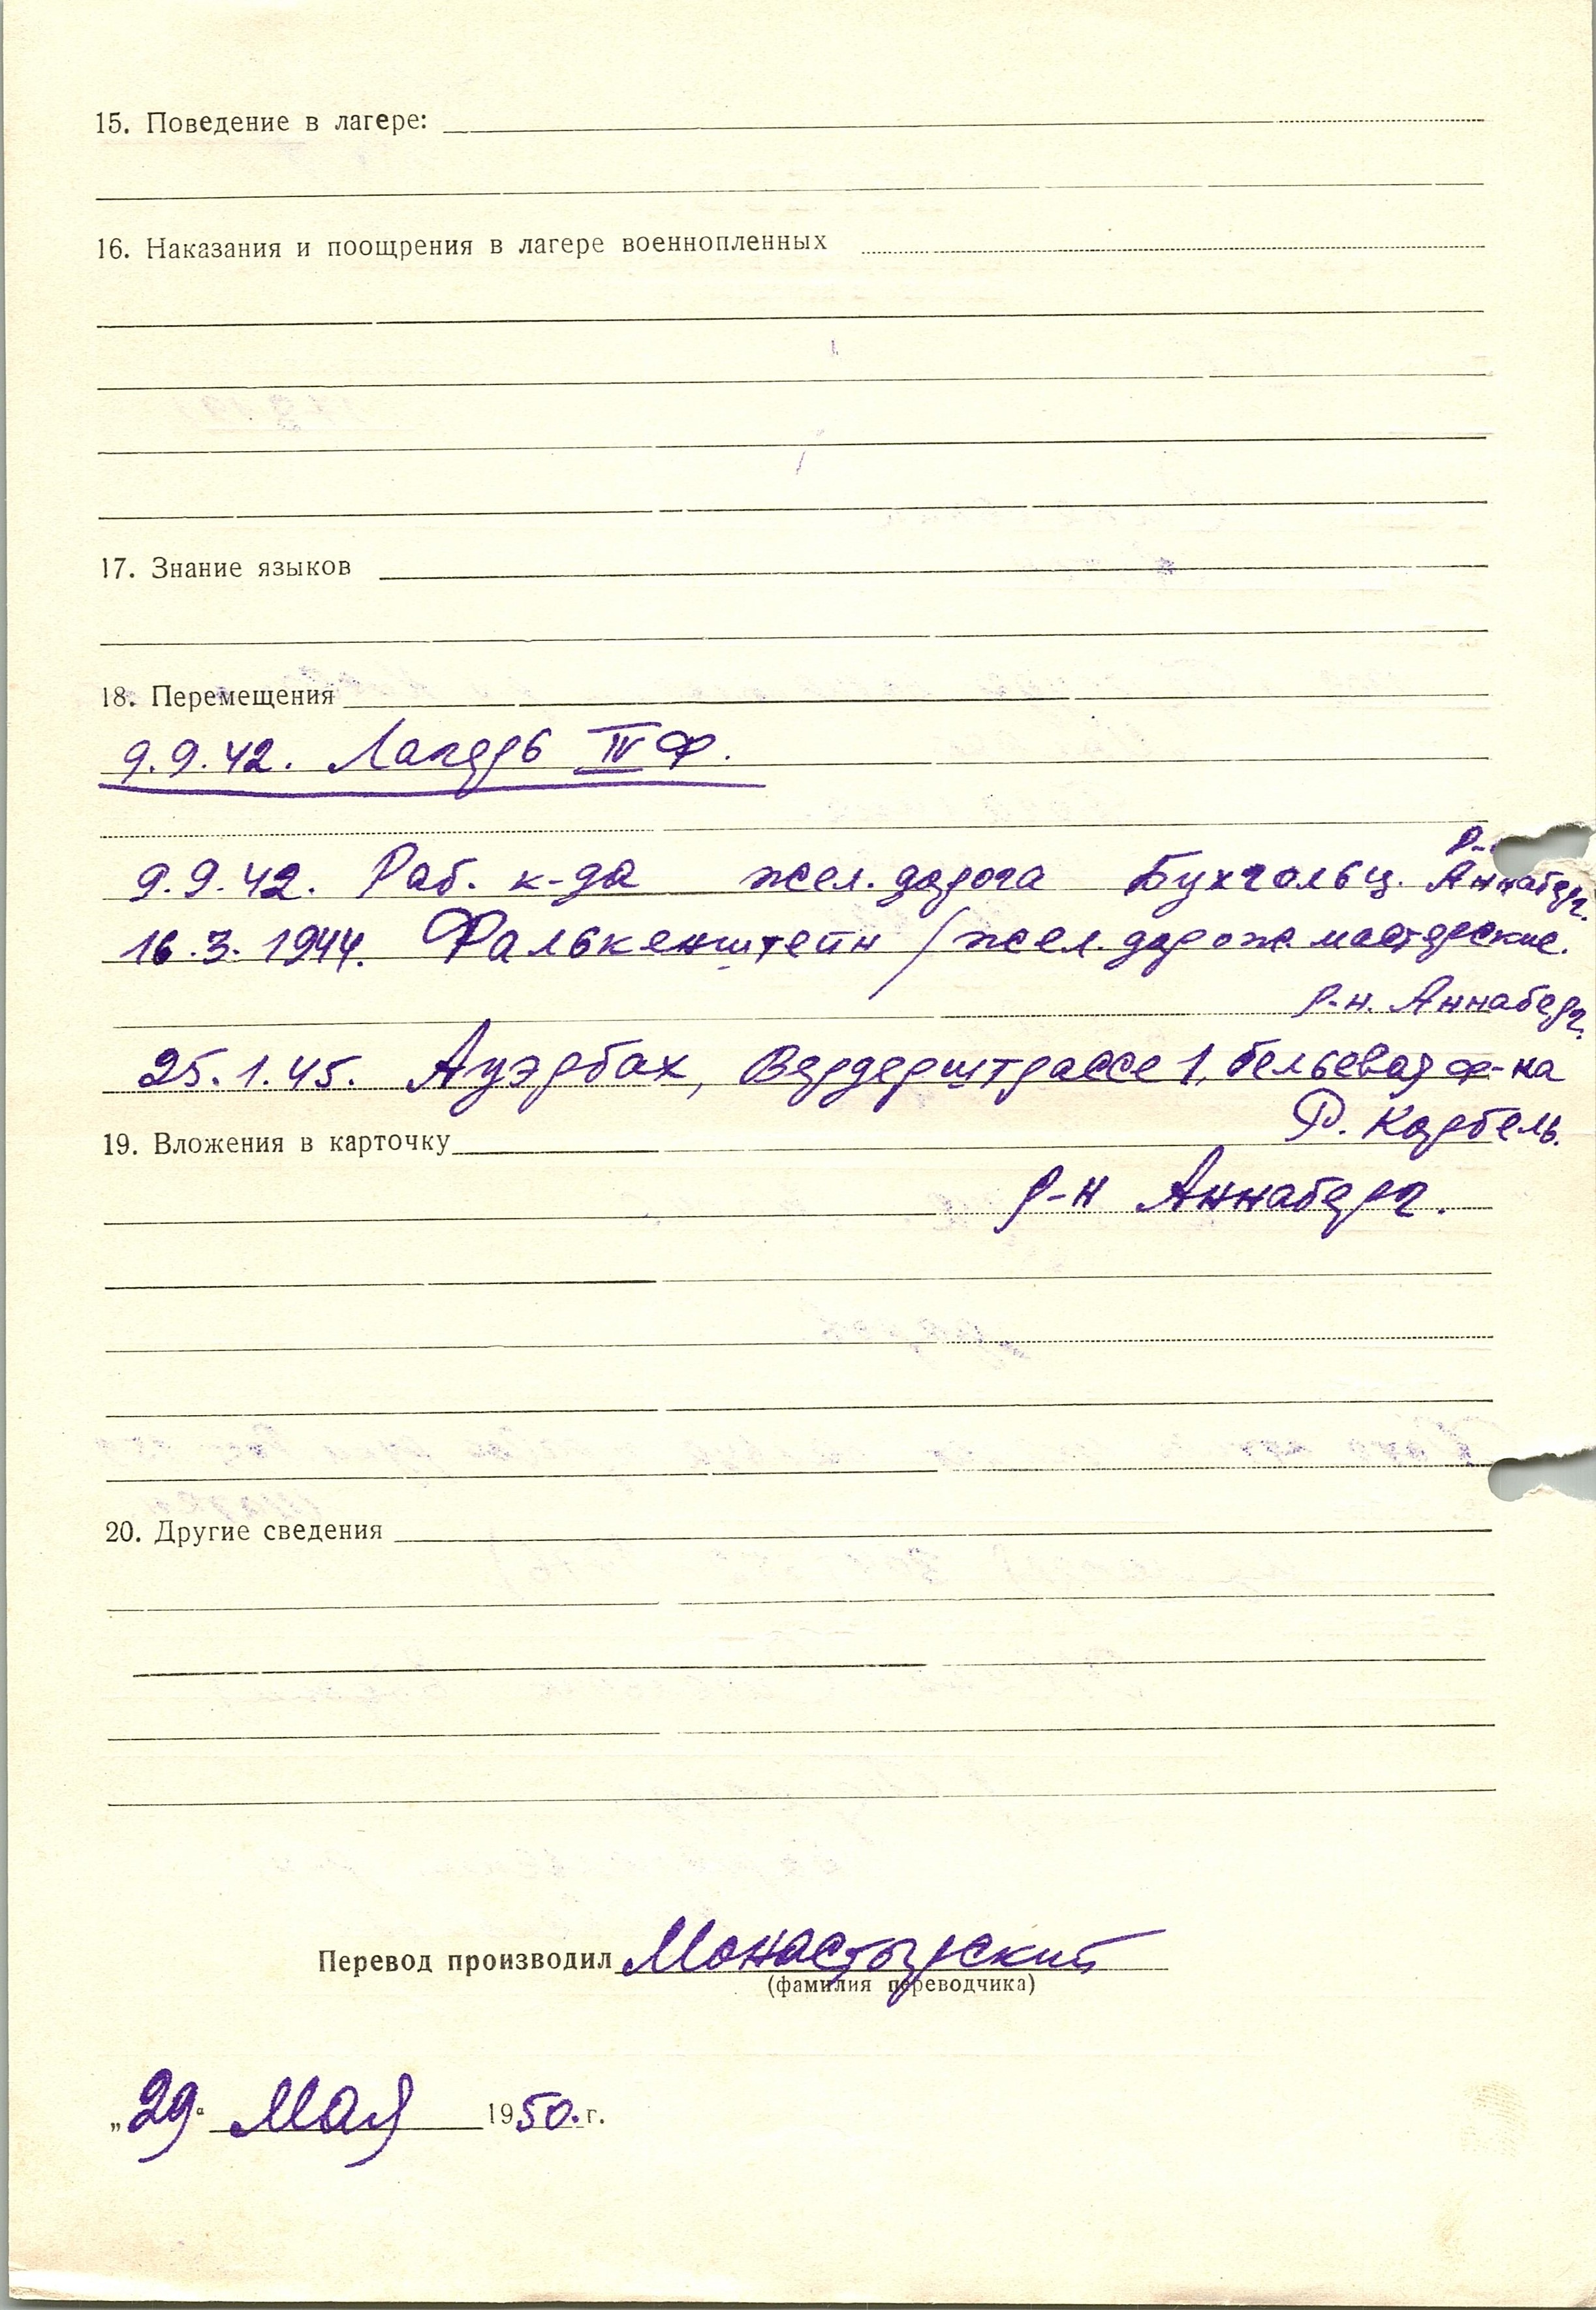 15. Поведение в лагере:
16. Наказания и поощрения в лагере военнопленных
17. Знание языков
18. Перемещения
9.9.42. Лагерь IV Ф.
9.9.42. Раб. к-да жел. дорога Бухгольц. Р-н Аннаберг.
16.3.1944. Фалькенштейн /жел. дорожн мастерские.
р-н. Аннаберг.
25.1.45. Ауэрбах, Вердерштрассе 1, бельевая ф-ка
Р. Кербель.
19. Вложения в карточку
р-н Аннаберг.
20. Другие сведения
Перевод производил Монастырский
(фамилия переводчика)
„29“ Мая 1950. г.